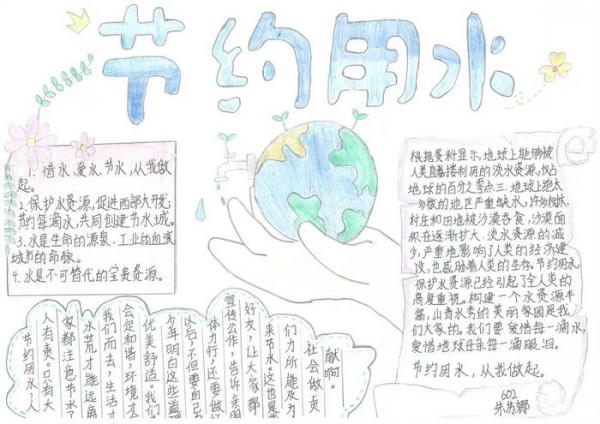 节约用水
1、惜水、爱水、节水,从我做
起。
2.保护水资源,促进西部大开发;
节约每滴水,共同创建节水城。
3.水是生命的源泉、工业的血液
城市的命脉。
4.水是不可替代的宝贵资源。
根据资料显示,地球上能够被
人类直接利用的淡水资源,仅占
地球的百分之零点三,地球上绝大
多数的地区严重缺水,许多树林、
村庄和田地被沙漠吞食,沙漠面
积在逐渐扩大,淡水资源的减
少,严重地影响了人类的经济建
设,也威胁着人类的生存。节约用水
保护水资源已经引起了全人类的
高度重视。构建一个水资源丰
富,山青水秀的美丽家园是我
们大家的。我们要爱惜每一滴水,
爱惜地球母亲每一滴眼泪。
节约用水,从我做起。
602
节约用水,人
人有责。只有大
家都注意节水了
水荒才能远离
我们而去,生活才
会定和谐,环境才
优美舒适。我们
今年明白这些道理
以后,不但要自己
体力行,还要做好
宣传公作,告诉亲朋
好友,让大家都
来节水。这也是我
们力所能及为
社会做贡
献啊。